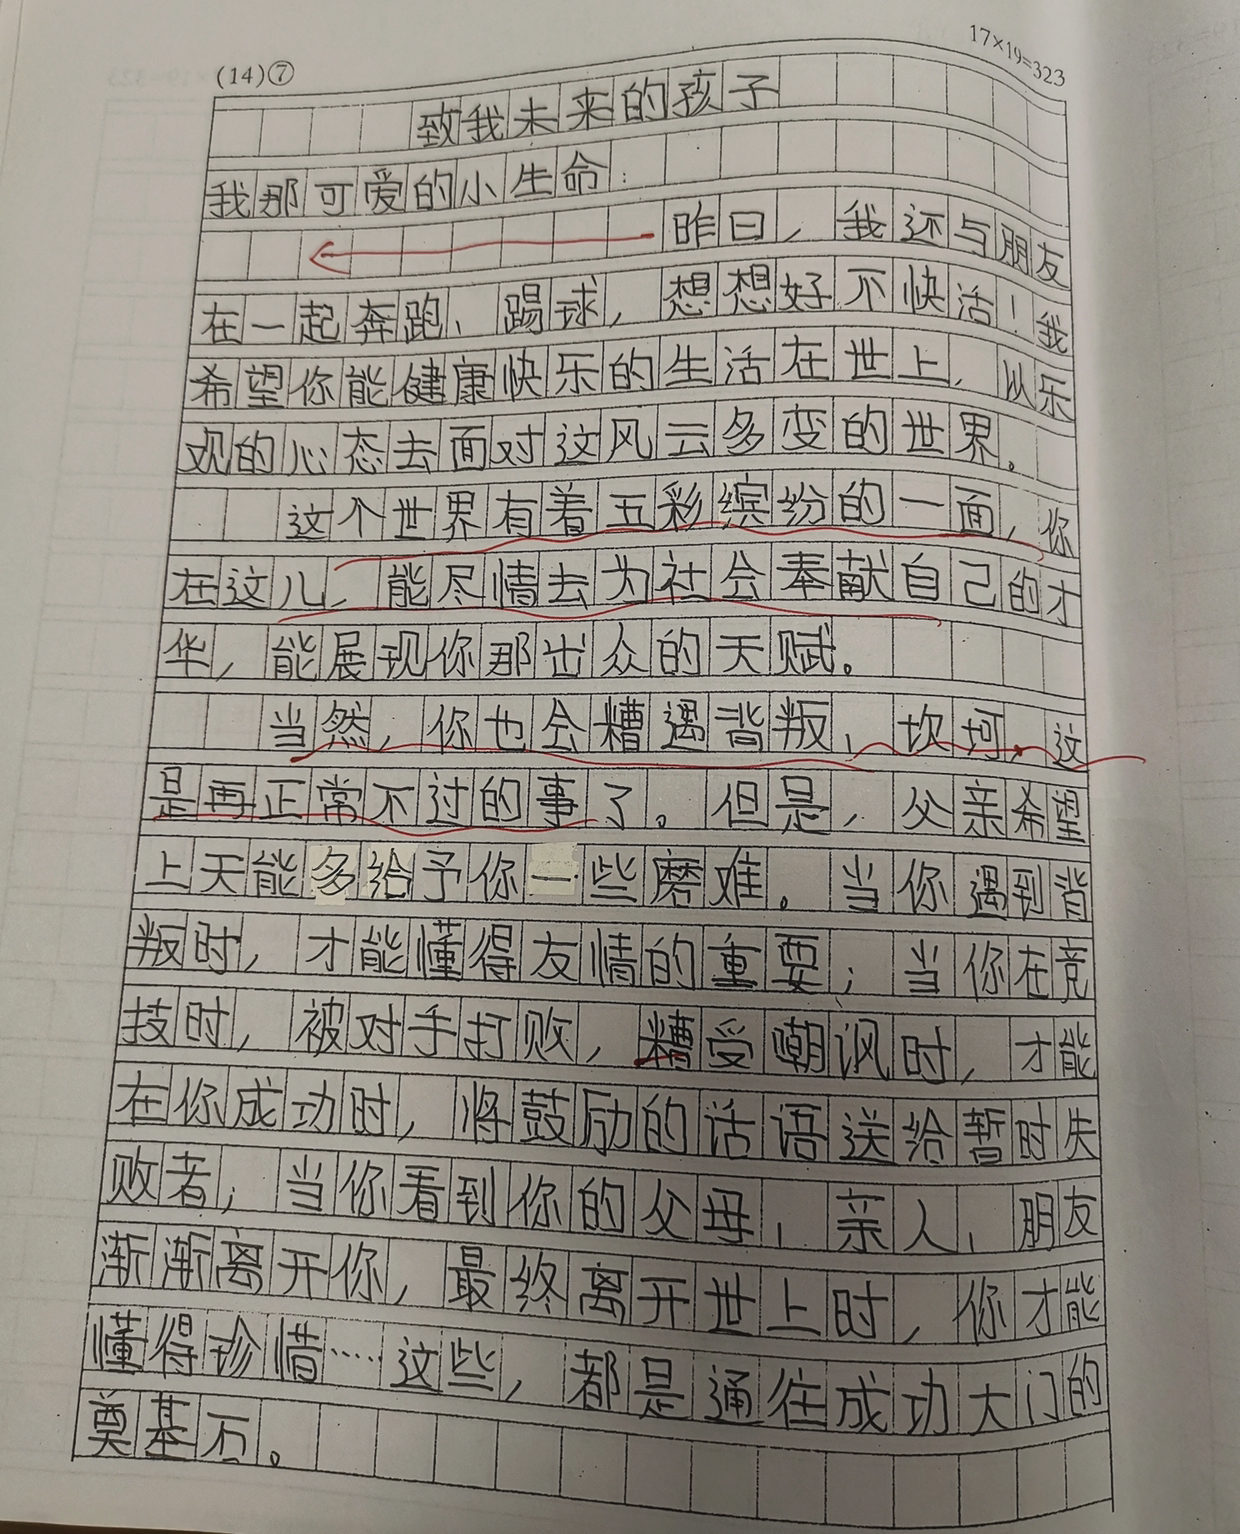 (14)⑦
17×19=323
致我未来的孩子
我那可爱的小生命:
昨日,我还与朋友
在一起奔跑、踢球,想想好不快活!我
希望你能健康快乐的生活在世上,以乐
观的心态去面对这风云多变的世界。
这个世界有着五彩缤纷的一面,你
在这儿,能尽情去为社会奉献自己的才
华,能展现你那出众的天赋。
当然,你也会糟遇背叛、坎坷,这
是再正常不过的事了。但是,父亲希望
上天能多给予你一些磨难。当你遇到背
叛时,才能懂得友情的重要;当你在竞
技时,被对手打败,糟受嘲讽时,才能
在你成功时,将鼓励的话语送给暂时失
败者;当你看到你的父母、亲人、朋友
渐渐离开你,最终离开世上时,你才能
懂得珍惜……这些,都是通往成功大门的
奠基石。